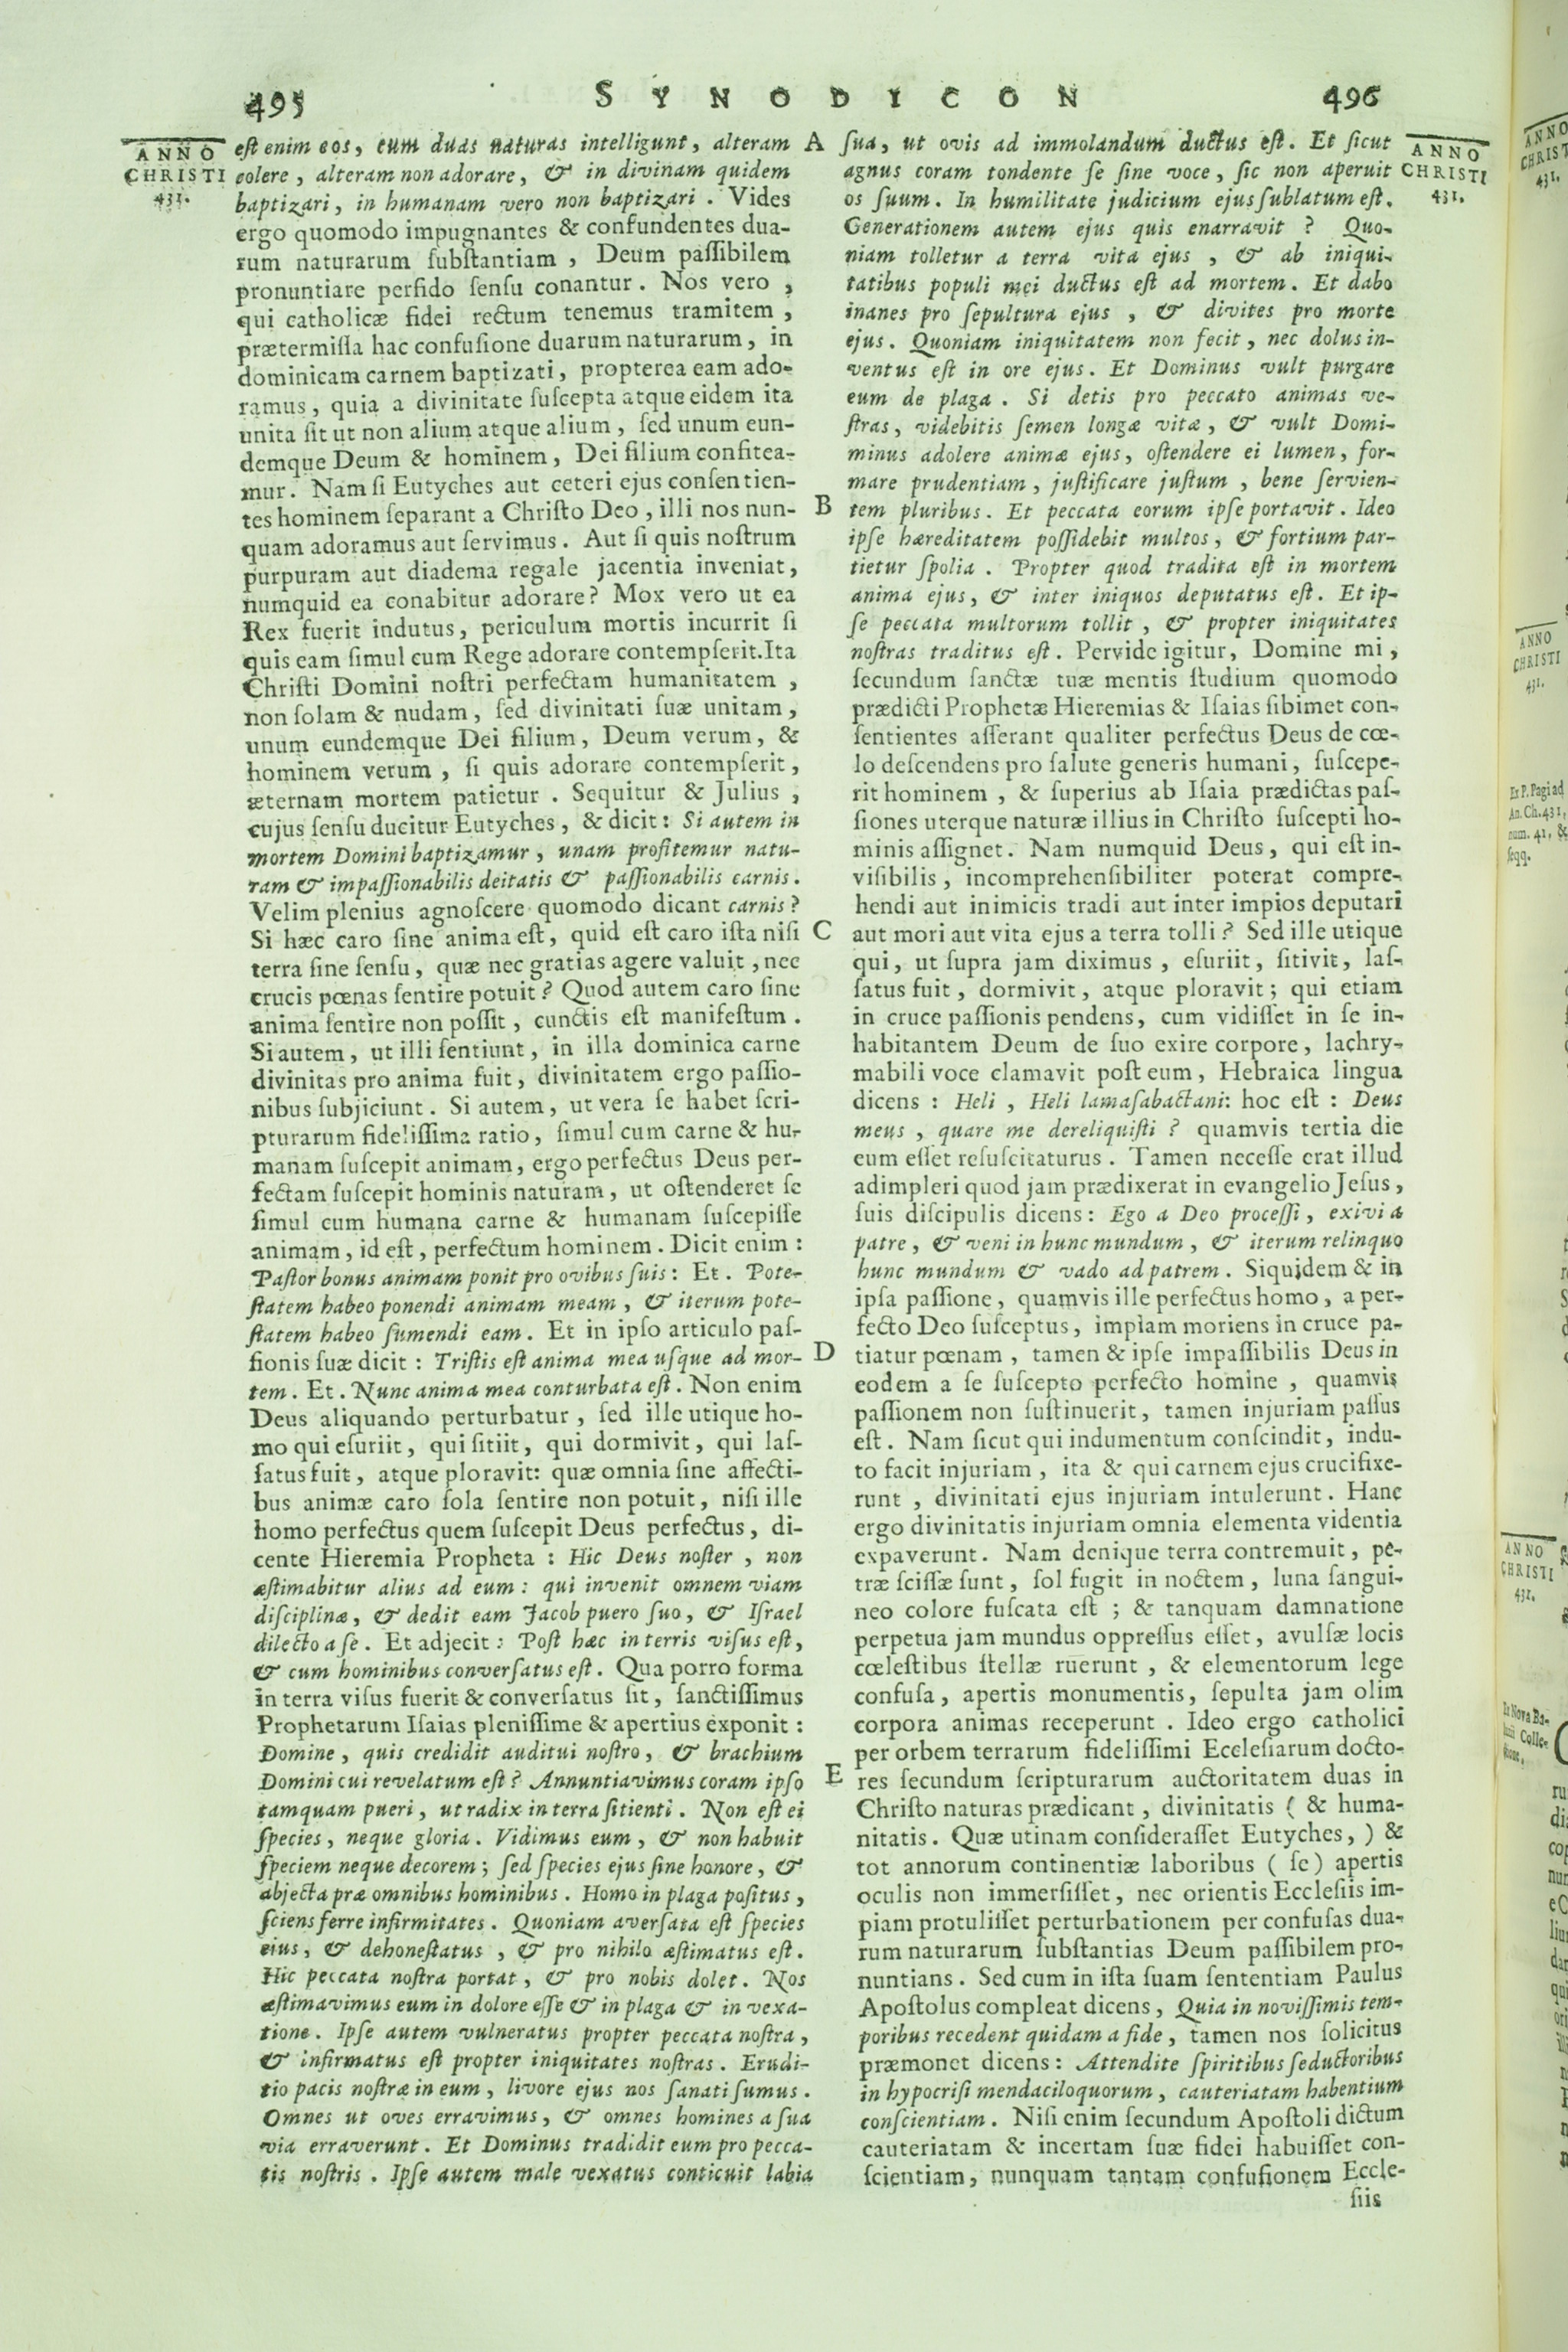 495 SYNODICON 496
ANNO
CHRISTI
431.
est enim eos, cum duas naturas intelligunt, alteram
colere, alteram non adorare, & in divinam quidem
baptizari, in humanam vero non baptizari. Vides
ergo quomodo impugnantes & confundentes dua-
rum naturarum ſubſtantiam, Deum paſſibilem
pronuntiare perfido ſenſu conantur. Nos vero,
qui catholicæ fidei rectum tenemus tramitem,
prætermiſſa hac confuſione duarum naturarum, in
dominicam carnem baptizati, propterea eam ado-
ramus, quia a divinitate ſuſcepta atque eidem ita
unita ſit ut non alium atque alium, ſed unum eun-
demque Deum & hominem, Dei filium confitea-
mur. Nam ſi Eutyches aut ceteri ejus conſentien-
tes hominem ſeparant a Chriſto Deo, illi nos nun-
quam adoramus aut ſervimus. Aut ſi quis noſtrum
purpuram aut diadema regale jacentia inveniat,
numquid ea conabitur adorare? Mox vero ut ea
Rex fuerit indutus, periculum mortis incurrit ſi
quis eam ſimul cum Rege adorare contempſerit. Ita
Chriſti Domini noſtri perfectam humanitatem,
non ſolam & nudam, ſed divinitati ſuæ unitam,
unum eundemque Dei filium, Deum verum, &
hominem verum, ſi quis adorare contempſerit,
æternam mortem patietur. Sequitur & Julius,
cujus ſenſu ducitur Eutyches, & dicit: Si autem in
mortem Domini baptizamur, unam profitemur natu-
ram & impaſſionabilis deitatis & paſſionabilis carnis.
Velim plenius agnoſcere quomodo dicant carnis?
Si hæc caro ſine anima eſt, quid eſt caro iſta niſi
terra ſine ſenſu, quæ nec gratias agere valuit, nec
crucis pœnas ſentire potuit? Quod autem caro ſine
anima ſentire non poſſit, cunctis eſt manifeſtum.
Si autem, ut illi ſentiunt, in illa dominica carne
divinitas pro anima fuit, divinitatem ergo paſſio-
nibus ſubjiciunt. Si autem, ut vera ſe habet ſcri-
pturarum fideliſſima ratio, ſimul cum carne & hu-
manam ſuſcepit animam, ergo perfectus Deus per-
fectam ſuſcepit hominis naturam, ut oſtenderet ſe
ſimul cum humana carne & humanam ſuſcepiſſe
animam, id eſt, perfectum hominem. Dicit enim:
Paſtor bonus animam ponit pro ovibus ſuis: Et. Pote-
ſtatem habeo ponendi animam meam, & iterum pote-
ſtatem habeo ſumendi eam. Et in ipſo articulo paſ-
ſionis ſuæ dicit: Triſtis eſt anima mea uſque ad mor-
tem. Et. Nunc anima mea conturbata eſt. Non enim
Deus aliquando perturbatur, ſed ille utique ho-
mo qui eſuriit, qui ſitiit, qui dormivit, qui laſ-
ſatus fuit, atque ploravit: quæ omnia ſine affecti-
bus animæ caro ſola ſentire non potuit, niſi ille
homo perfectus quem ſuſcepit Deus perfectus, di-
cente Hieremia Propheta: Hic Deus noſter, non
æſtimabitur alius ad eum: qui invenit omnem viam
diſciplinæ, & dedit eam Jacob puero ſuo, & Iſrael
dilecto a ſe. Et adjecit: Poſt hæc in terris viſus eſt,
& cum hominibus converſatus eſt. Qua porro forma
in terra viſus fuerit & converſatus ſit, ſanctiſſimus
Prophetarum Iſaias pleniſſime & apertius exponit:
Domine, quis credidit auditui noſtro, & brachium
Domini cui revelatum eſt? Annuntiavimus coram ipſo
tamquam pueri, ut radix in terra ſitienti. Non eſt ei
ſpecies, neque gloria. Vidimus eum, & non habuit
ſpeciem neque decorem; ſed ſpecies ejus ſine honore, &
abjecta præ omnibus hominibus. Homo in plaga poſitus,
ſciens ferre infirmitates. Quoniam averſata eſt ſpecies
eius, & dehoneſtatus, & pro nihilo æſtimatus eſt.
Hic peccata noſtra portat, & pro nobis dolet. Nos
æſtimavimus eum in dolore eſſe & in plaga & in vexa-
tione. Ipſe autem vulneratus propter peccata noſtra,
& infirmatus eſt propter iniquitates noſtras. Erudi-
tio pacis noſtræ in eum, livore ejus nos ſanati ſumus.
Omnes ut oves erravimus, & omnes homines a ſua
via erraverunt. Et Dominus tradidit eum pro pecca-
tis noſtris. Ipſe autem male vexatus conticuit labia
A
B
C
D
E
ſua, ut ovis ad immolandum ductus eſt. Et ſicut
agnus coram tondente ſe ſine voce, ſic non aperuit
os ſuum. In humilitate judicium ejus ſublatum eſt.
Generationem autem ejus quis enarravit? Quo-
niam tolletur a terra vita ejus, & ab iniqui-
tatibus populi mei ductus eſt ad mortem. Et dabo
inanes pro ſepultura ejus, & divites pro morte
ejus. Quoniam iniquitatem non fecit, nec dolus in-
ventus eſt in ore ejus. Et Dominus vult purgare
eum de plaga. Si detis pro peccato animas ve-
ſtras, videbitis ſemen longæ vitæ, & vult Domi-
minus adolere animæ ejus, oſtendere ei lumen, for-
mare prudentiam, juſtificare juſtum, bene ſervien-
tem pluribus. Et peccata eorum ipſe portavit. Ideo
ipſe hæreditatem poſſidebit multos, & fortium par-
tietur ſpolia. Propter quod tradita eſt in mortem
anima ejus, & inter iniquos deputatus eſt. Et ip-
ſe peccata multorum tollit, & propter iniquitates
noſtras traditus eſt. Pervide igitur, Domine mi,
ſecundum ſanctæ tuæ mentis ſtudium quomodo
prædicti Prophetæ Hieremias & Iſaias ſibimet con-
ſentientes aſſerant qualiter perfectus Deus de cœ-
lo deſcendens pro ſalute generis humani, ſuſcepe-
rit hominem, & ſuperius ab Iſaia prædictas paſ-
ſiones uterque naturæ illius in Chriſto ſuſcepti ho-
minis aſſignet. Nam numquid Deus, qui eſt in-
viſibilis, incomprehenſibiliter poterat compre-
hendi aut inimicis tradi aut inter impios deputari
aut mori aut vita ejus a terra tolli? Sed ille utique
qui, ut ſupra jam diximus, eſuriit, ſitivit, laſ-
ſatus fuit, dormivit, atque ploravit; qui etiam
in cruce paſſionis pendens, cum vidiſſet in ſe in-
habitantem Deum de ſuo exire corpore, lachry-
mabili voce clamavit poſt eum, Hebraica lingua
dicens: Heli, Heli lamaſabactani: hoc eſt: Deus
meus, quare me dereliquiſti? quamvis tertia die
eum eſſet reſuſcitaturus. Tamen neceſſe erat illud
adimpleri quod jam prædixerat in evangelio Jeſus,
ſuis diſcipulis dicens: Ego a Deo proceſſi, exivi a
patre, & veni in hunc mundum, & iterum relinquo
hunc mundum & vado ad patrem. Siquidem & in
ipſa paſſione, quamvis ille perfectus homo, a per-
fecto Deo ſuſceptus, impiam moriens in cruce pa-
tiatur pœnam, tamen & ipſe impaſſibilis Deus in
eodem a ſe ſuſcepto perfecto homine, quamvis
paſſionem non ſuſtinuerit, tamen injuriam paſſus
eſt. Nam ſicut qui indumentum conſcindit, indu-
to facit injuriam, ita & qui carnem ejus crucifixe-
runt, divinitati ejus injuriam intulerunt. Hanc
ergo divinitatis injuriam omnia elementa videntia
expaverunt. Nam denique terra contremuit, pe-
træ ſciſſæ ſunt, ſol fugit in noctem, luna ſangui-
neo colore fuſcata eſt; & tanquam damnatione
perpetua jam mundus oppreſſus eſſet, avulſæ locis
cœleſtibus ſtellæ ruerunt, & elementorum lege
confuſa, apertis monumentis, ſepulta jam olim
corpora animas receperunt. Ideo ergo catholici
per orbem terrarum fideliſſimi Eccleſiarum docto-
res ſecundum ſcripturarum auctoritatem duas in
Chriſto naturas prædicant, divinitatis ( & huma-
nitatis. Quæ utinam conſideraſſet Eutyches, ) &
tot annorum continentiæ laboribus ( ſe ) apertis
oculis non immerſiſſet, nec orientis Eccleſiis im-
piam protuliſſet perturbationem per confuſas dua-
rum naturarum ſubſtantias Deum paſſibilem pro-
nuntians. Sed cum in iſta ſuam ſententiam Paulus
Apoſtolus compleat dicens, Quia in noviſſimis tem-
poribus recedent quidam a fide, tamen nos ſolicitus
præmonet dicens: Attendite ſpiritibus ſeductoribus
in hypocriſi mendaciloquorum, cauteriatam habentium
conſcientiam. Niſi enim ſecundum Apoſtoli dictum
cauteriatam & incertam ſuæ fidei habuiſſet con-
ſcientiam, nunquam tantam confuſionem Eccle-
ſiis
ANNO
CHRISTI
431.
ANNO
CHRISTI
431.
Ex P. Pagi ad
An. Ch. 431,
num. 41, &
ſeqq.
ANNO
CHRISTI
431.